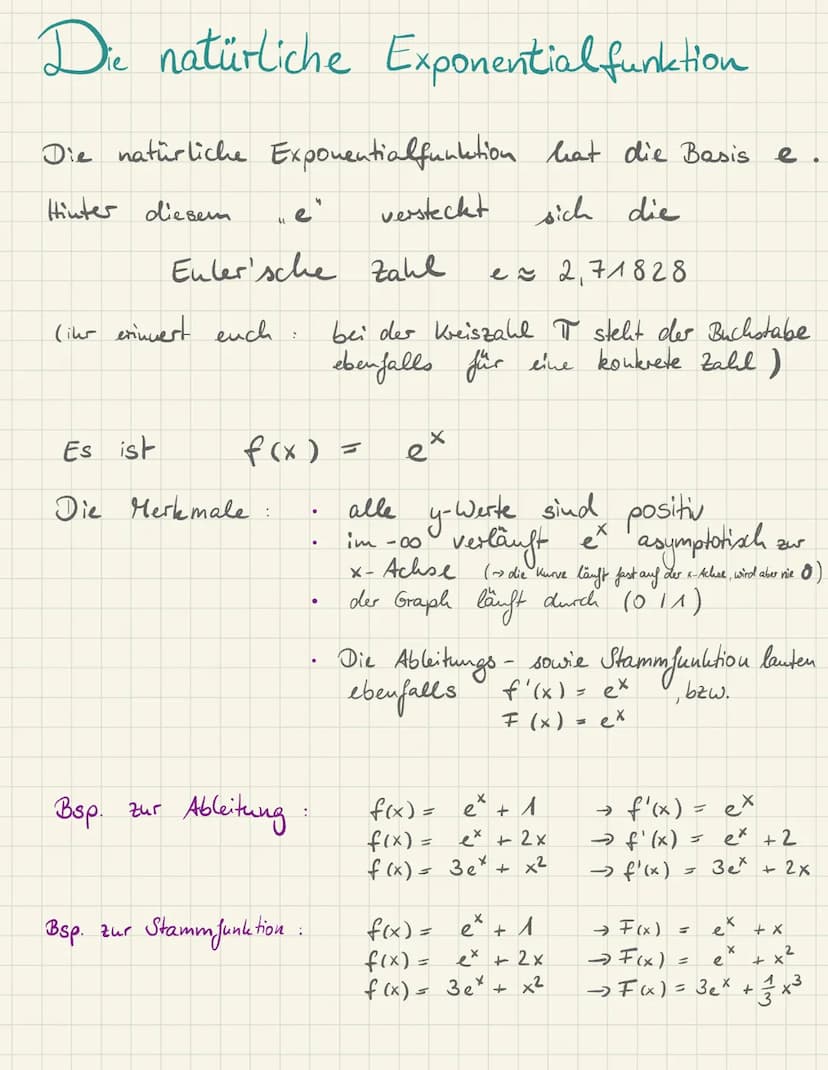 Die natürliche Exponentialfunktion
Die natürliche Exponentialfunktion hat die Basis e.
Hinter diesem „e" versteckt sich die
Euler'sche Zahl e ≈ 2,71828
(ihr erinnert euch : bei der Kreiszahl π steht der Buchstabe
ebenfalls für eine konkrete Zahl)
Es ist f(x) = eˣ
Die Merkmale : • alle y-Werte sind positiv
• im -∞ verläuft eˣ asymptotisch zur
x-Achse (→ die Kurve läuft fast auf der x-Achse, wird aber nie 0)
• der Graph läuft durch (0/1)
• Die Ableitungs- sowie Stammfunktion lauten
ebenfalls f'(x) = eˣ, bzw.
F(x) = eˣ
Bsp. zur Ableitung : f(x) = eˣ + 1 → f'(x) = eˣ
f(x) = eˣ + 2x → f'(x) = eˣ + 2
f(x) = 3eˣ + x² → f'(x) = 3eˣ + 2x
Bsp. zur Stammfunktion : f(x) = eˣ + 1 → F(x) = eˣ + x
f(x) = eˣ + 2x → F(x) = eˣ + x²
f(x) = 3eˣ + x² → F(x) = 3eˣ + 1/3 x³